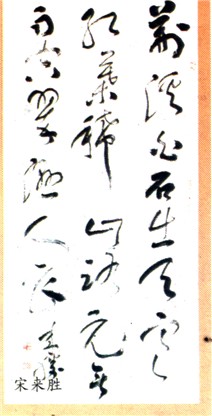 荆溪白石出天寒
红葉稀山路元无
雨空翠濕人衣 来胜
宋来胜